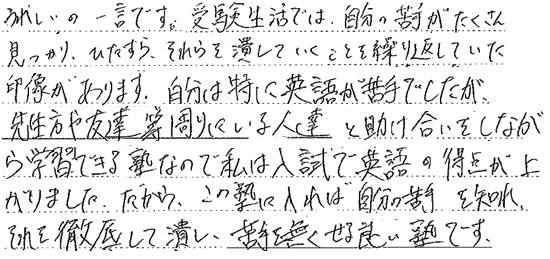 うれしいの一言です。受験生活では、自分の苦手がたくさん
見つかり、ひたすら、それらを潰していくことを繰り返していた
印象があります。自分は特に英語が苦手でしたが、
先生方や友達等周りにいる人達と助け合いをしなが
ら学習できる塾なので私は入試で英語の得点が上
がりました。だから、この塾に入れば自分の苦手を知れ、
それを徹底して潰し、苦手を無くせる良い塾です。